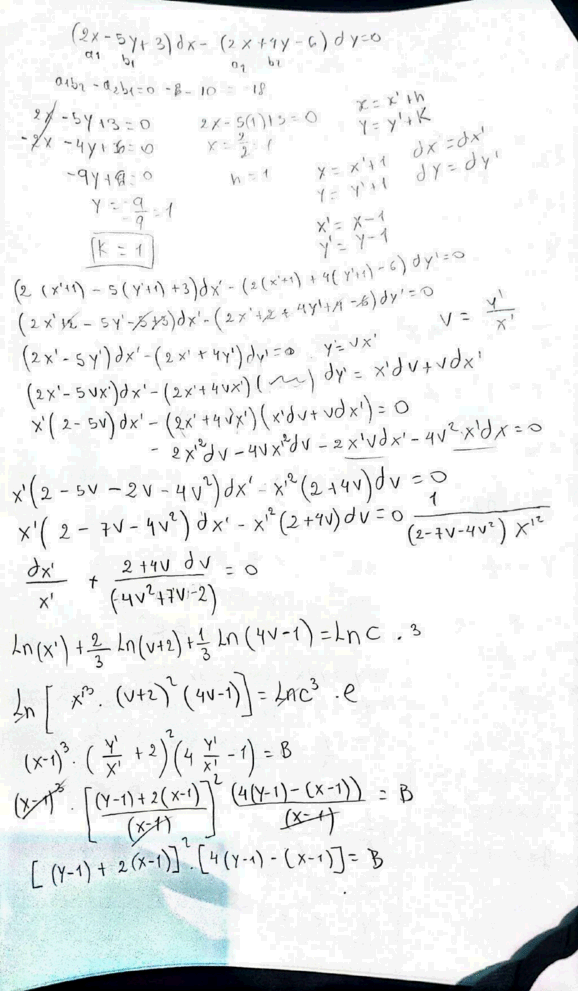 (2x - 5y + 3) dx - (2x + 4y - 6) dy = 0
a1 b1 a2 b2
a1b2 - a2b1 = 0 -8 - 10 = 18
2x - 5y + 3 = 0 2x - 5(1) + 3 = 0 x = x' + h
-2x - 4y + 6 = 0 x = 2/2 = 1 y = y' + K
-9y + 9 = 0 h = 1 x = x' + 1 dx = dx'
y = -9/-9 = 1 y = y' + 1 dy = dy'
K = 1 x' = x - 1
y' = y - 1
(2(x'+1) - 5(y'+1) + 3) dx' - (2(x'+1) + 4(y'+1) - 6) dy' = 0
(2x' + 2 - 5y' - 5 + 3) dx' - (2x' + 2 + 4y' + 4 - 6) dy' = 0 v = y'/x'
(2x' - 5y') dx' - (2x' + 4y') dy' = 0 y' = vx'
(2x' - 5vx') dx' - (2x' + 4vx') ( ) dy' = x'dv + vdx'
x'(2 - 5v) dx' - (2x' + 4vx')(x'dv + vdx') = 0
- 2x'²dv - 4vx'²dv - 2x'vdx' - 4v²x'dx = 0
x'(2 - 5v - 2v - 4v²) dx' - x'²(2 + 4v) dv = 0
x'(2 - 7v - 4v²) dx' - x'²(2 + 4v) dv = 0 1/((2 - 7v - 4v²) x'²)
dx'/x' + (2 + 4v dv)/(4v² + 7v - 2) = 0
Ln(x') + 2/3 Ln(v+2) + 1/3 Ln(4v-1) = Ln C . 3
Ln [ x'³ . (v+2)² (4v-1)] = Lnc³ . e
(x-1)³ . (y'/x' + 2)² (4 y'/x' - 1) = B
(x-1)³ . [((y-1) + 2(x-1))/(x-1)]² (4(y-1) - (x-1))/(x-1) = B
[(y-1) + 2(x-1)]² . [4(y-1) - (x-1)] = B